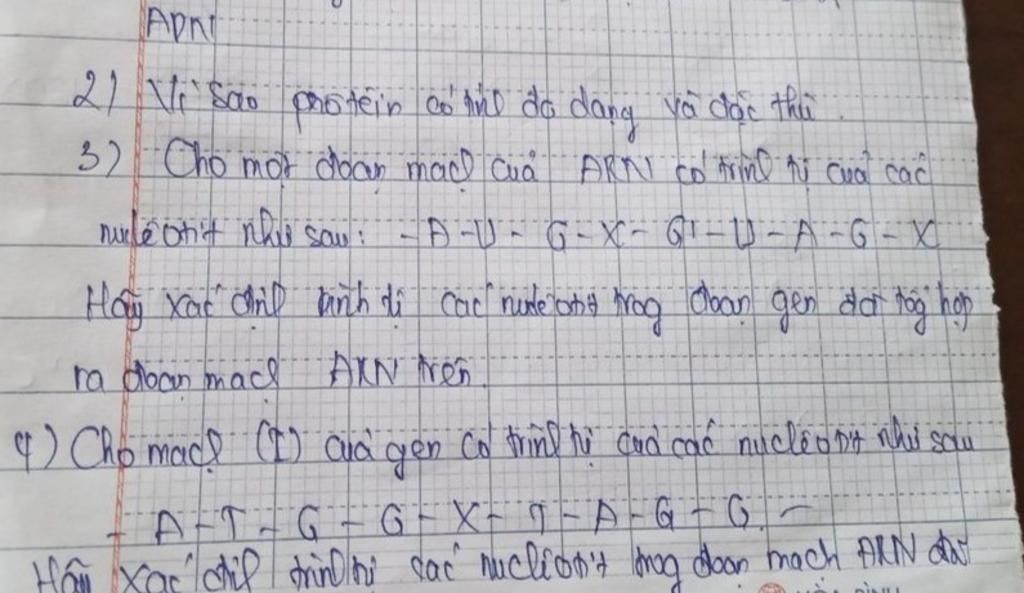 ADN
2) Vì sao protein có tính đa dạng và đặc thù.
3) Cho một đoạn mạch của ARN có trình tự của các
nucleotit như sau: - A - U - G - X - G - U - A - G - X
Hãy xác định trình tự các nucleotit trong đoạn gen đã tổng hợp
ra đoạn mạch ARN trên.
4) Cho mạch (I) của gen có trình tự của các nucleotit như sau
- A - T - G - G - X - T - A - G - G -
Hãy xác định trình tự các nucleotit trong đoạn mạch ARN